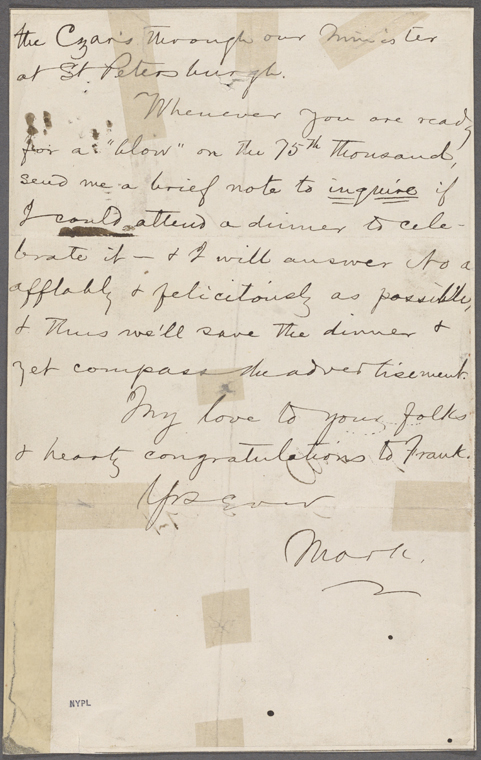 the Czar's through our Minister
at St Petersburgh.
Whenever you are ready
for a "blow" on the 75th thousand,
send me a brief note to inquire if
I could attend a dinner to cele-
brate it — & I will answer No as
affably & felicitously as possible,
& thus we'll save the dinner &
yet compass the advertisement.
My love to your folks
& hearty congratulations to Frank.
Yrs Ever
Mark.
NYPL